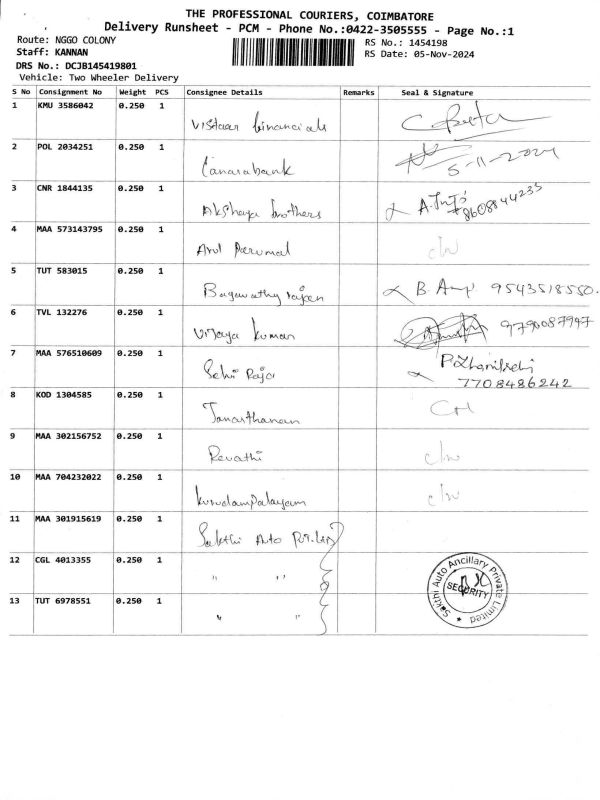 THE PROFESSIONAL COURIERS, COIMBATORE
Delivery Runsheet - PCM - Phone No.:0422-3505555 - Page No.:1
Route: NGGO COLONY
RS No.: 1454198
Staff: KANNAN
RS Date: 05-Nov-2024
DRS No.: DCJB145419801
Vehicle: Two Wheeler Delivery
S No Consignment No Weight PCS Consignee Details Remarks Seal & Signature
1 KMU 3586042 0.250 1 Vistaar financials
2 POL 2034251 0.250 1 Canara bank 5-11-2024
3 CNR 1844135 0.250 1 Akshaya brothers 8608844235
4 MAA 573143795 0.250 1 Arul Perumal
5 TUT 583015 0.250 1 Bagavathy rajan 9543518550
6 TVL 132276 0.250 1 Vijaya kumar 9790087947
7 MAA 576510609 0.250 1 Selvi Raja 7708486242
8 KOD 1304585 0.250 1 Janarthanan
9 MAA 302156752 0.250 1 Revathi
10 MAA 704232022 0.250 1 kurudampalayam
11 MAA 301915619 0.250 1 Sakthi Auto Pvt.Ltd
12 CGL 4013355 0.250 1 " "
13 TUT 6978551 0.250 1 " "
Sakthi Auto Ancillary Private Limited
SECURITY